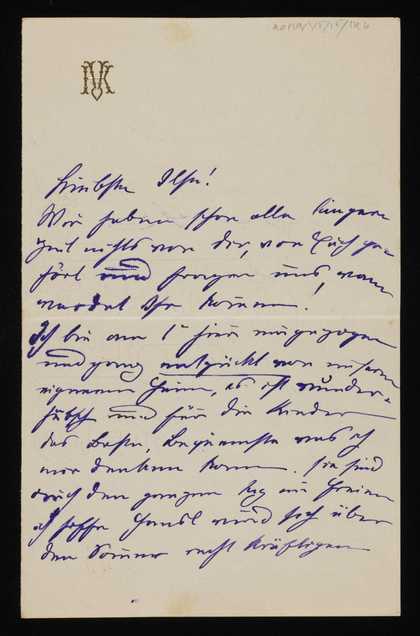 Liebste Ilse!
Wir haben schon alle längere
Zeit nichts von dir, von Euch ge-
hört und fragen uns, wann
werdet Ihr kommen!
Ich bin am 1ten hier eingezogen
und ganz entzückt von unserem
eigenen Heim, es ist wunder-
hübsch und für die Kinder
das Beste, Bequemste was ich
mir denken kann. Sie sind
auch den ganzen Tag im Freien
ich hoffe Hansl wird sich über
den Sommer recht kräftigen